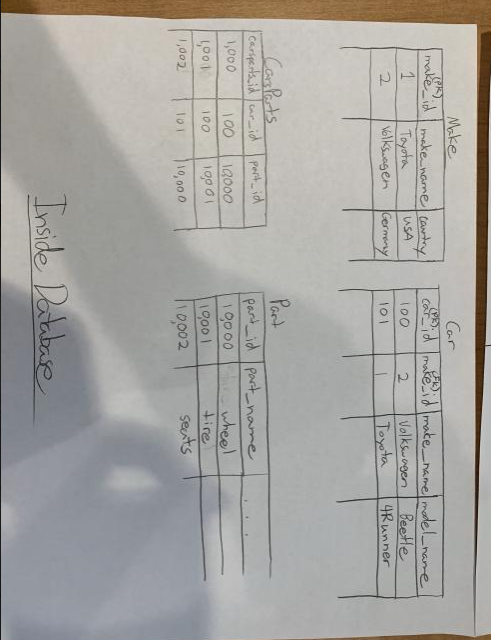 Make
(PK) make_id make_name country
1 Toyota USA
2 Volkswagen Germany
Car
(PK) car_id (FK) make_id make_name model_name
100 2 Volkswagen Beetle
101 1 Toyota 4Runner
CarParts
carparts_id car_id part_id
1,000 100 10,000
1,001 100 10,001
1,002 101 10,000
Part
part_id part_name . . .
10,000 wheel
10,001 tire
10,002 seats
Inside Database